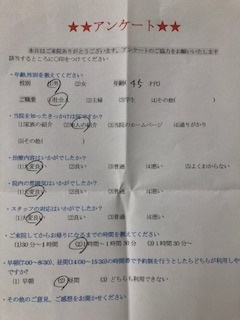 ★★アンケート★★
本日はご来院ありがとうございます。アンケートのご協力をお願いいたします
該当するところに○印をつけてください
・年齢,性別を教えてください
性別 (1)男 (2)女 年齢( 45 才代)
ご職業 (1)社会人 (2)主婦 (3)学生 (4)その他( )
・当院を知ったきっかけは何ですか?
(1)家族の紹介 (2)知人の紹介 (3)当院のホームページ (4)通りがかり
(5)その他( )
・治療内容はいかがでしたか?
(1)大変良い (2)良い (3)普通 (4)悪い (5)よくわからない
・院内の雰囲気はいかがでしたか?
(1)大変良い (2)良い (3)普通 (4)悪い
・スタッフの対応はいかがでしたか?
(1)大変良い (2)良い (3)普通 (4)悪い
・ご来院してからお帰りになるまでの時間を教えてください
(1)30分~1時間 (2)1時間~1時間30分 (3)1時間30分~
・早朝(7:00~8:30)、昼間(14:00~15:30)の時間帯で予約制を行うとしたらどちらが利用しやすいですか?
(1)早朝 (2)昼間 (3)どちらも利用できない
・その他のご意見、ご感想をお聞かせください